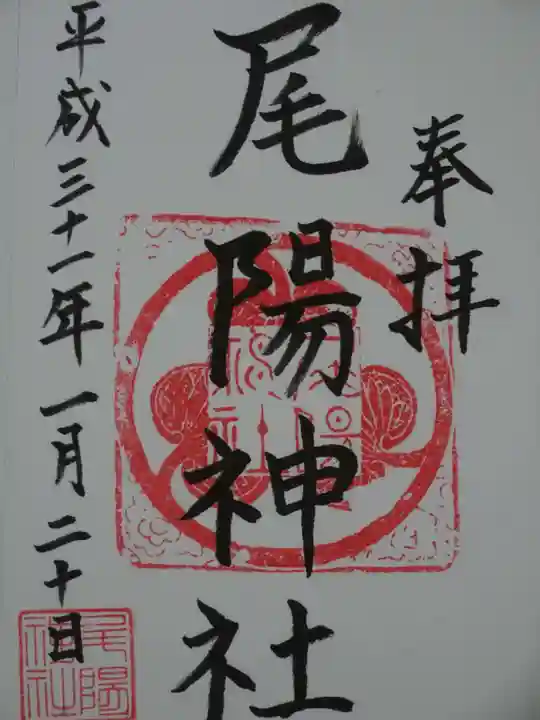 奉拝
尾陽神社
平成三十一年一月二十日
尾陽
神社